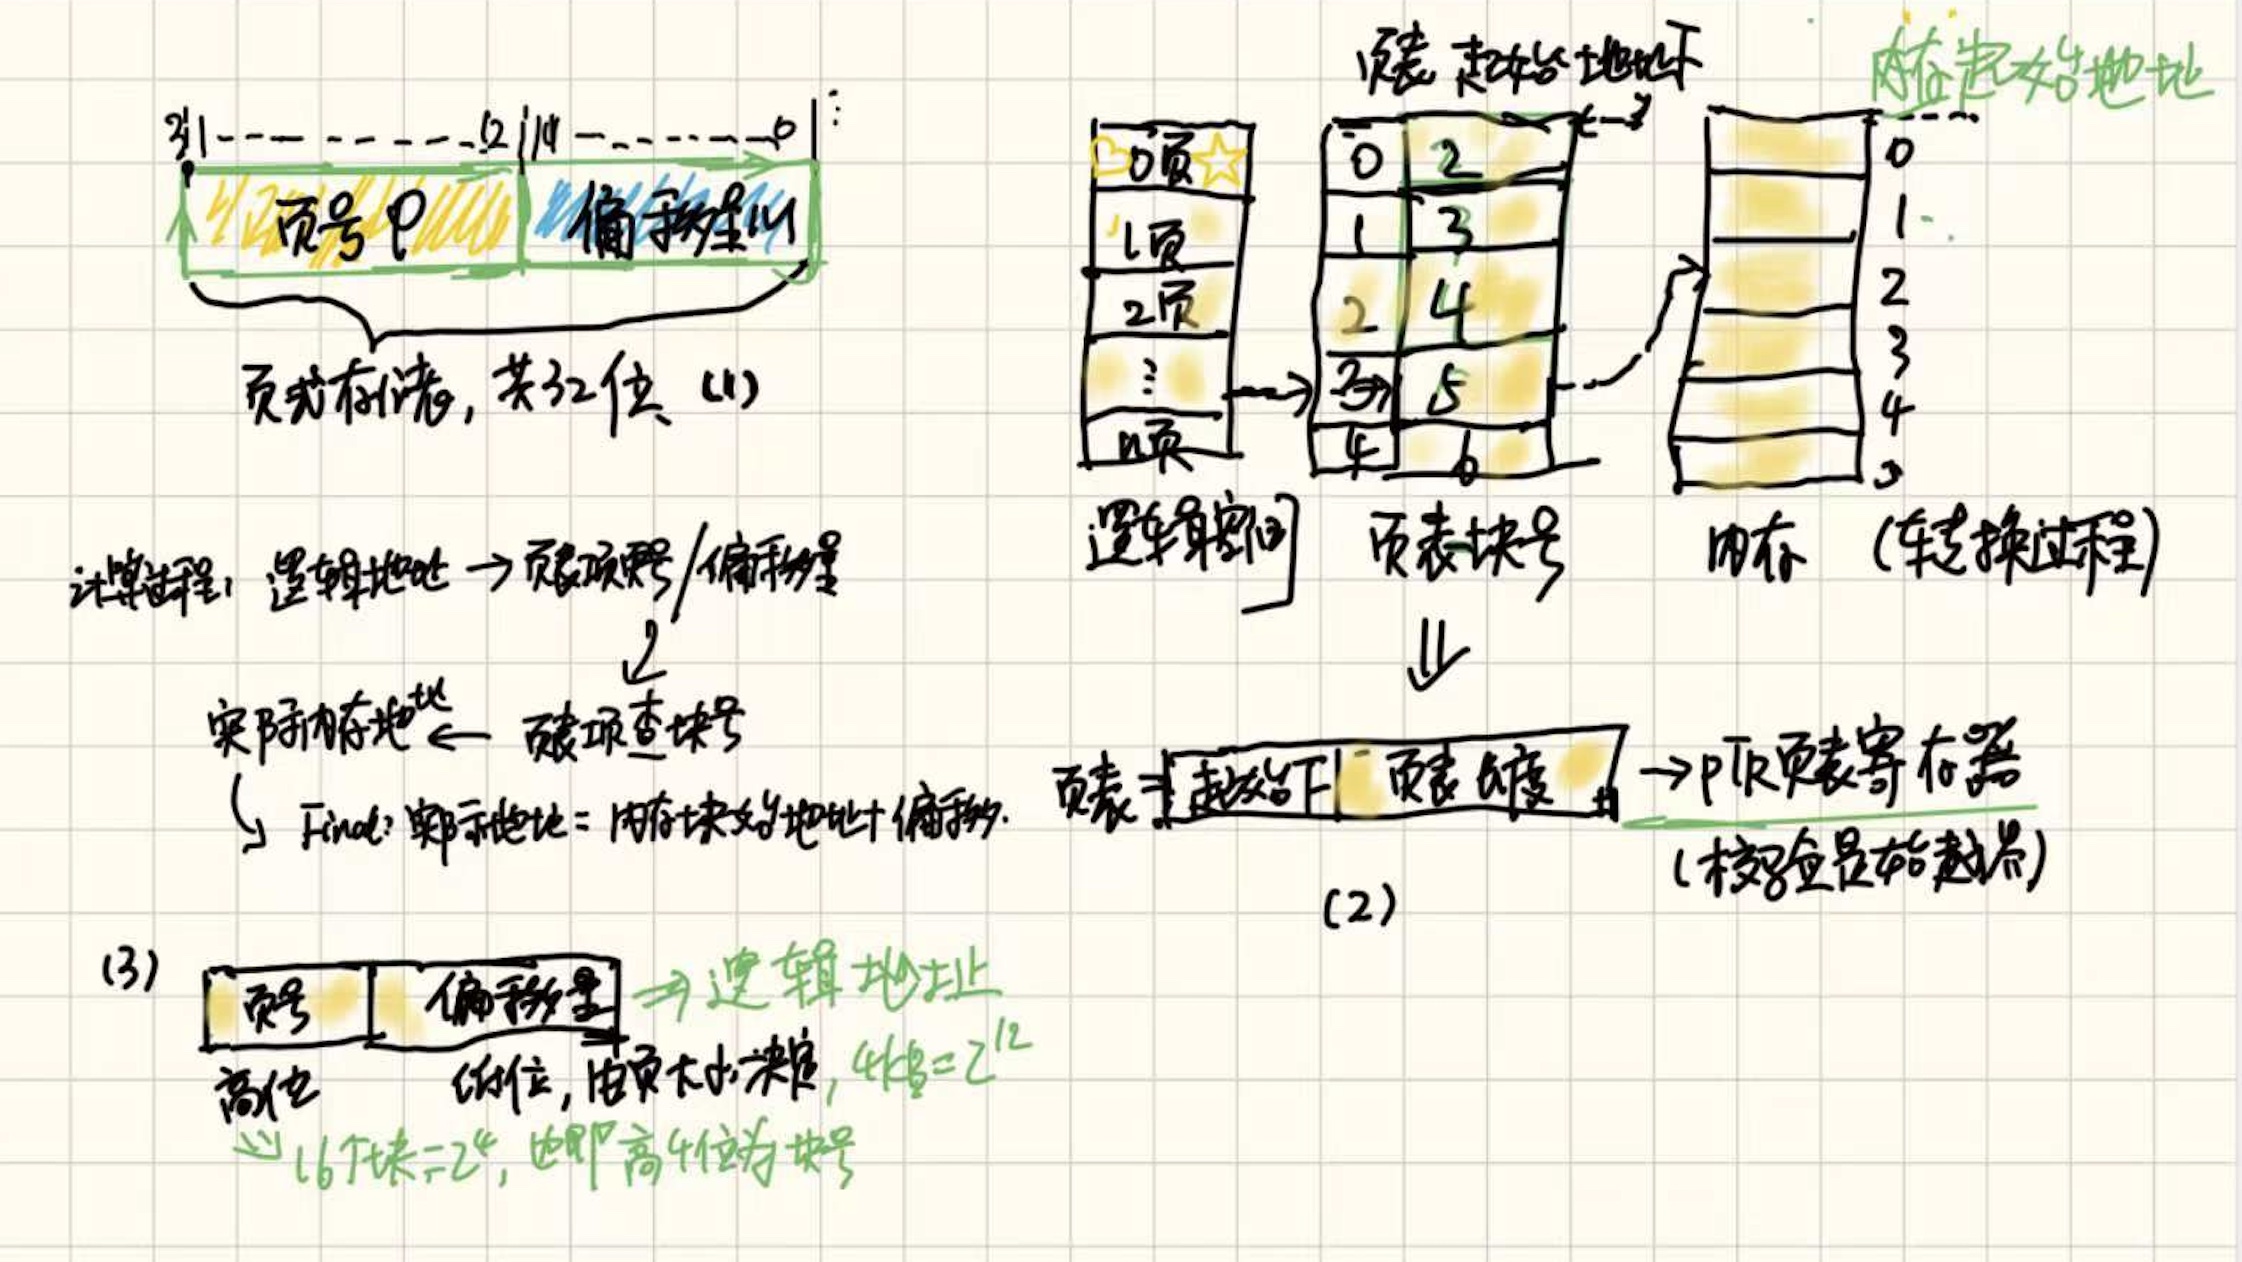 31 ------- 12 11 ------- 0
页号 P 偏移量 W
页式存储, 共32位 (1)
页表 起始地址F
内存起始地址
0页
1页
2页
⋮
n页
0 2
1 3
2 4
3 5
4 6
0
1
2
3
4
5
逻辑空间
页表块号
内存 (转换过程)
计算过程: 逻辑地址 → 页表项页号/偏移量
实际内存地址 ← 页表项查块号
Final: 实际地址 = 内存块始地址+偏移.
页表 = 起始F 页表长度 → PTR页表寄存器
(校验是否越界)
(2)
(3)
页号 偏移量 ⇒ 逻辑地址
高位 低位, 由页大小决定, 4KB=2^12
16个块=2^4, 也即高4位为块号